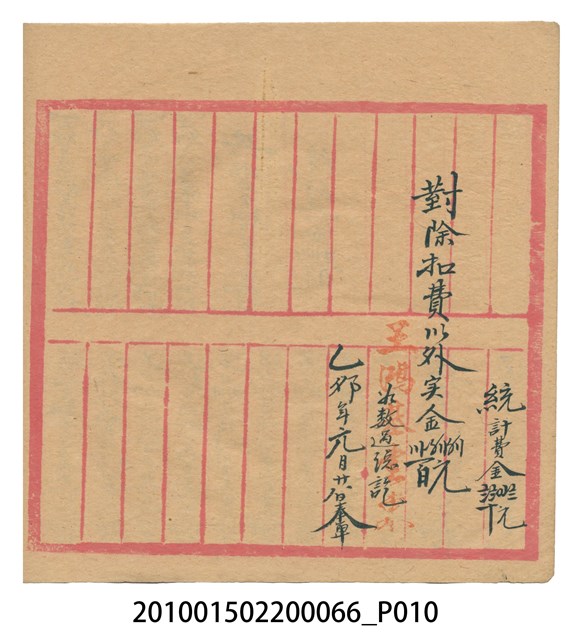 統計費金
元
對除扣費以外实金
百元
如数過德訖
乙卯年元月廿八日奉單
201001502200066_P010